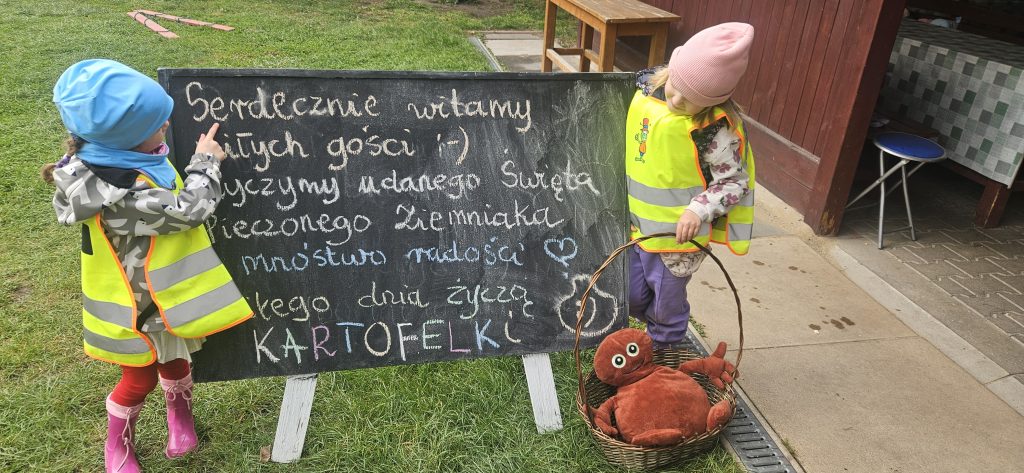 Serdecznie witamy
miłych gości :-)
życzymy udanego Święta
Pieczonego Ziemniaka
mnóstwo radości
dnia życzą
KARTOFELKi